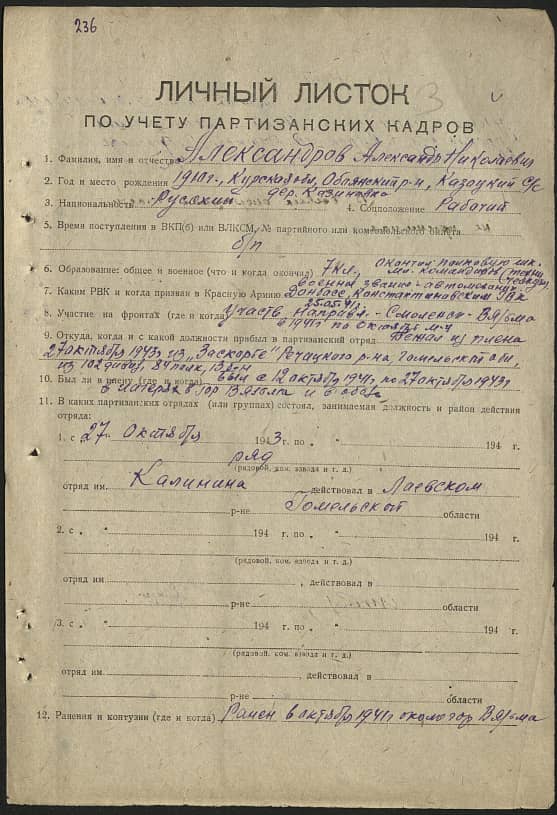 236
ЛИЧНЫЙ ЛИСТОК
3
ПО УЧЕТУ ПАРТИЗАНСКИХ КАДРОВ
1. Фамилия, имя и отчество Александров Александр Николаевич
2. Год и место рождения 1910 г., Курская обл, Обоянский р-н, Казоцкий с/с
дер. Казиновка
3. Национальность Русский 4. Соцположение Рабочий
5. Время поступления в ВКП(б) или ВЛКСМ, № партийного или комсомольского билета
б/п
6. Образование: общее и военное (что и когда окончил) 7 кл., окончил полковую шк.
мл. командиров
военное звание - автомеханик
7. Каким РВК и когда призван в Красную Армию Донбасс, Константиновским РВК
25.05.41 г.
8. Участие на фронтах (где и когда) Участв. Направл. - Смоленск - Вязьма
в 1941 г по октябрь м-ц
9. Откуда, когда и с какой должности прибыл в партизанский отряд Бежал из плена
27 октября 1943 г из "Заскорье" Речицкого р-на Гомельской обл,
из 102 дивиз, 84 полк,
10. Был ли в плену (где и когда) был с 12 октября 1941 г по 27 октября 1943 г
в лагерях в гор Вязьма и в
11. В каких партизанских отрядах (или группах) состоял, занимаемая должность и район действия
отряда:
1. с „27„ Октября 1943 г. по „ „ 194 г.
ряд
(рядовой, ком. взвода и т. д.)
отряд им. Калинина действовал в Лаевском
р-не Гомельской области
2. с „ „ 194 г. по „ „ 194 г.
(рядовой, ком. взвода и т. д.)
отряд им , действовал в
р-не области
3. с „ „ 194 г. по „ „ 194 г.
(рядовой, ком. взвода и т. д.)
отряд им. действовал в
р-не области
12. Ранения и контузии (где и когда) Ранен в октябре 1941 г около гор Вязьма